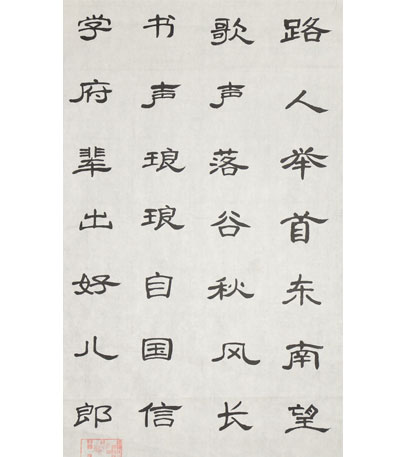 路人举首东南望
歌声落谷秋风长
书声琅琅自国信
学府辈出好儿郎